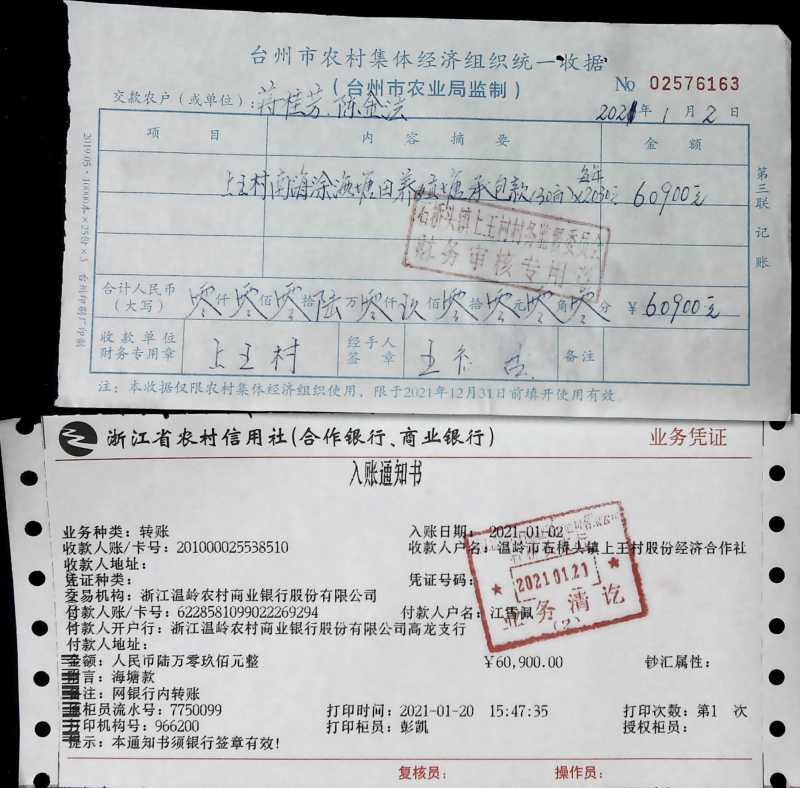 台州市农村集体经济组织统一收据
(台州市农业局监制)
No 02576163
交款农户(或单位): 蒋桂芳、陈金法
2021年1月2日
项目 内容摘要 金额
上王村南海涂海塘田养蛏塘承包款(30亩)×2030元 60900元
石桥头镇上王村村务监督委员会
财务审核专用章
合计人民币
(大写) 零仟零佰零拾陆万零仟玖佰零拾零元零角零分 ¥60900元
收款单位
财务专用章 上王村 经手人
签章 备注
注:本收据仅限农村集体经济组织使用,限于2021年12月31日前填开使用有效。
第三联 记账
浙江省农村信用社(合作银行、商业银行) 业务凭证
入账通知书
业务种类:转账 入账日期:2021-01-02
收款人账/卡号:201000025538510 收款人户名:温岭市石桥头镇上王村股份经济合作社
收款人地址:
凭证种类: 凭证号码:
交易机构:浙江温岭农村商业银行股份有限公司
付款人账/卡号:6228581099022269294 付款人户名:江雪佩
付款人开户行:浙江温岭农村商业银行股份有限公司高龙支行
付款人地址:
金额:人民币陆万零玖佰元整 ¥60,900.00 钞汇属性:
附言:海塘款
备注:网银行内转账
原柜员流水号:7750099 打印时间:2021-01-20 15:47:35 打印次数:第1 次
打印机构号:966200 打印柜员:彭凯 授权柜员:
提示:本通知书须银行签章有效!
复核员: 操作员:
20210121
业务清讫
(2)